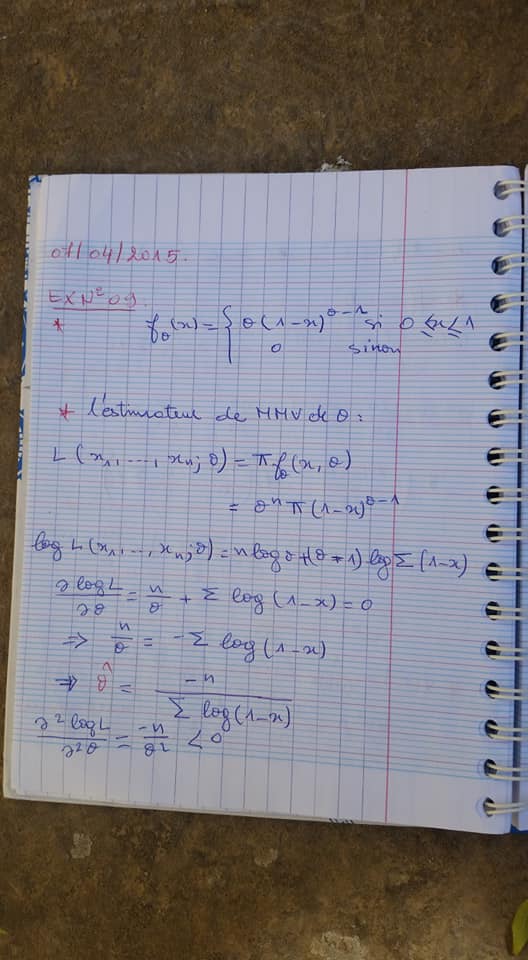 07/04/2015.
EXN°09.
* fθ(x) = { θ(1-x)^θ-1 si 0 ≤ x ≤ 1
0 sinon
* l'estimateur de MMV de θ :
L(x1, ..., xn; θ) = π fθ(x, θ)
= θ^n π (1-x)^θ-1
log L(x1, ..., xn; θ) = n log θ + (θ-1) log Σ (1-x)
∂ log L / ∂θ = n/θ + Σ log (1-x) = 0
=> n/θ = -Σ log (1-x)
=> θ̂ = -n / Σ log(1-x)
∂² log L / ∂²θ = -n/θ² < 0